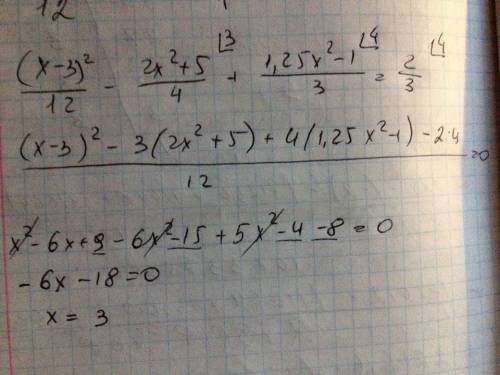 12
(x-3)²/12 - 2x²+5/4 ⌊3 + 1,25x²-1/3 ⌊4 = 2/3 ⌊4
(x-3)² - 3(2x²+5) + 4(1,25x²-1) - 2·4/12 = 0
x² - 6x + 9 - 6x² - 15 + 5x² - 4 - 8 = 0
- 6x - 18 = 0
x = 3